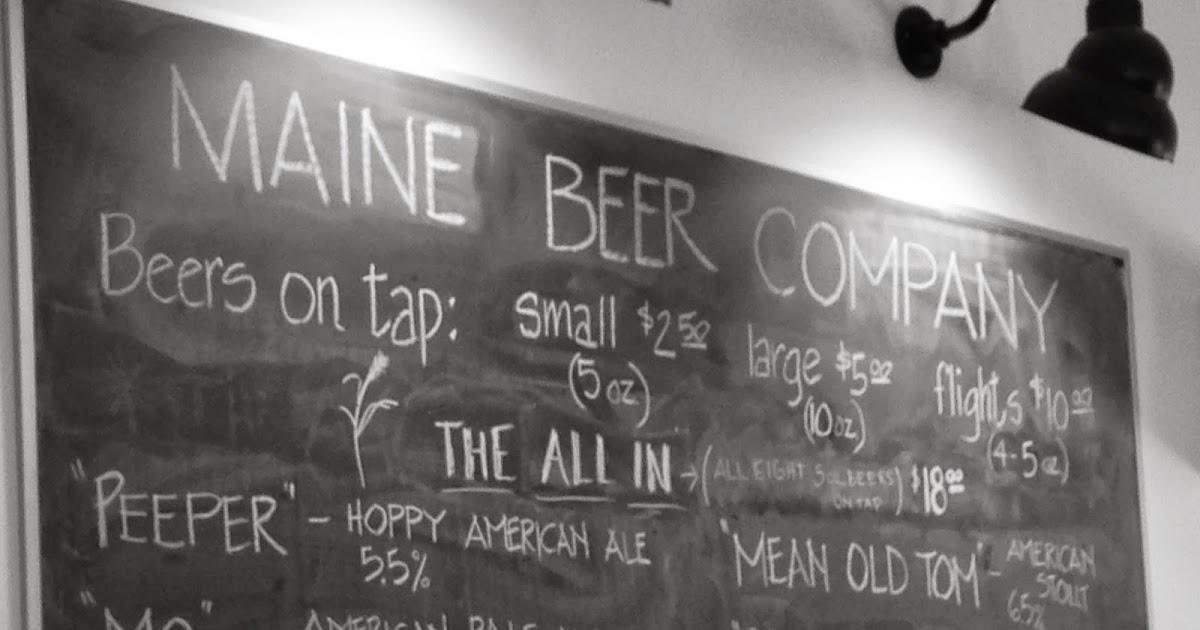 MAINE BEER COMPANY
Beers on tap: small $2.50 large $5.00 flights $10.00
(5 oz) (10 oz) (4-5 oz)
THE ALL IN → (ALL EIGHT 5oz BEERS ON TAP) $18.00
"PEEPER" - HOPPY AMERICAN ALE
5.5%
"MEAN OLD TOM" - AMERICAN
STOUT
6.5%
"MO" AMERICAN PALE